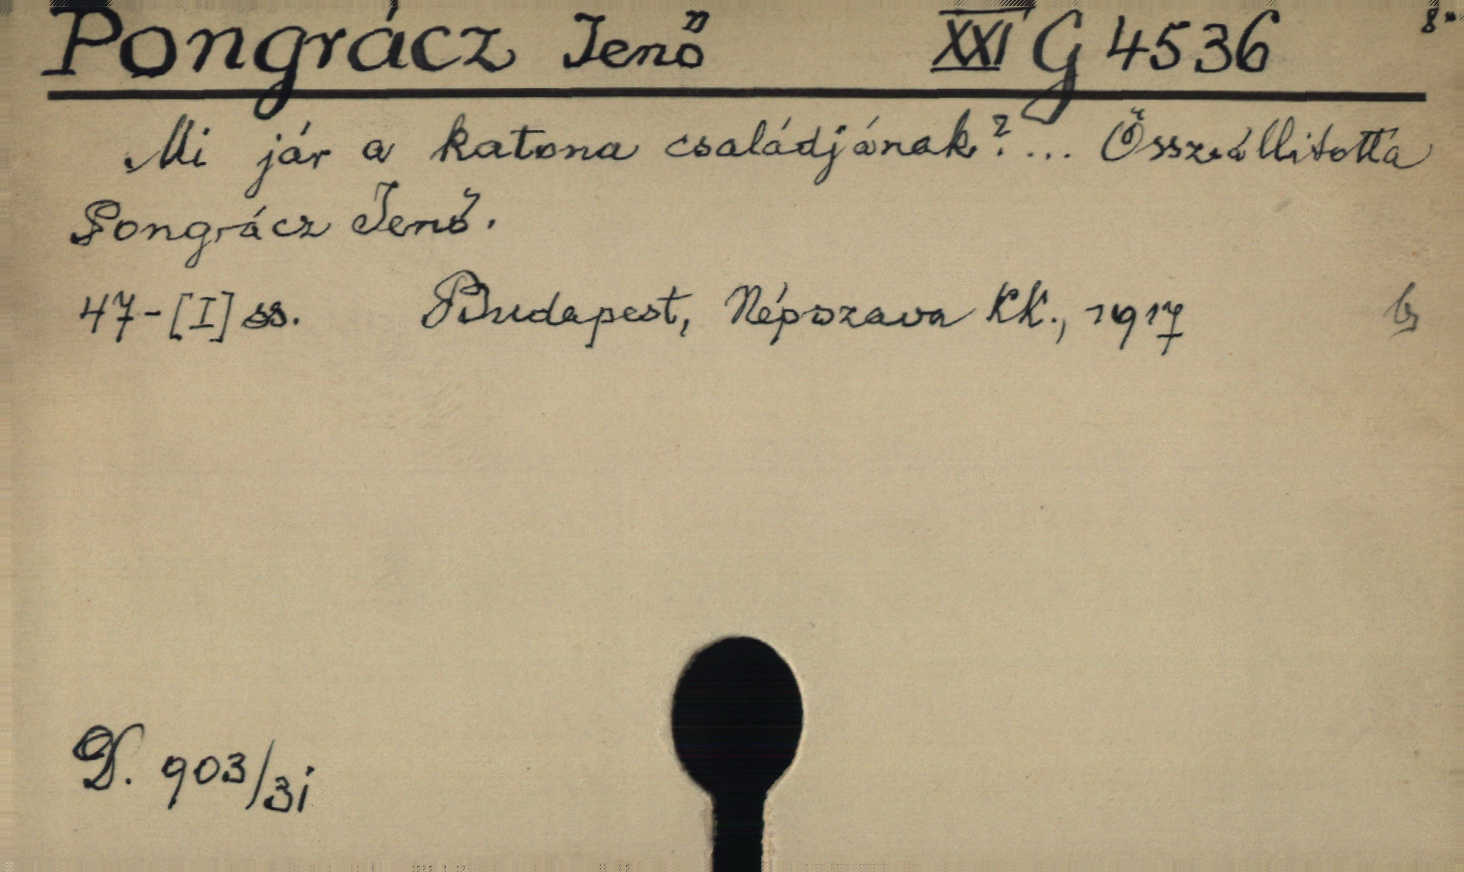 Pongrácz Jenő XXI G 4536 8°
Mi jár a katona családjának? ... Összeállította
Pongrácz Jenő.
47-[I] ss. Budapest, Népszava KK., 1917
D. 903/3i